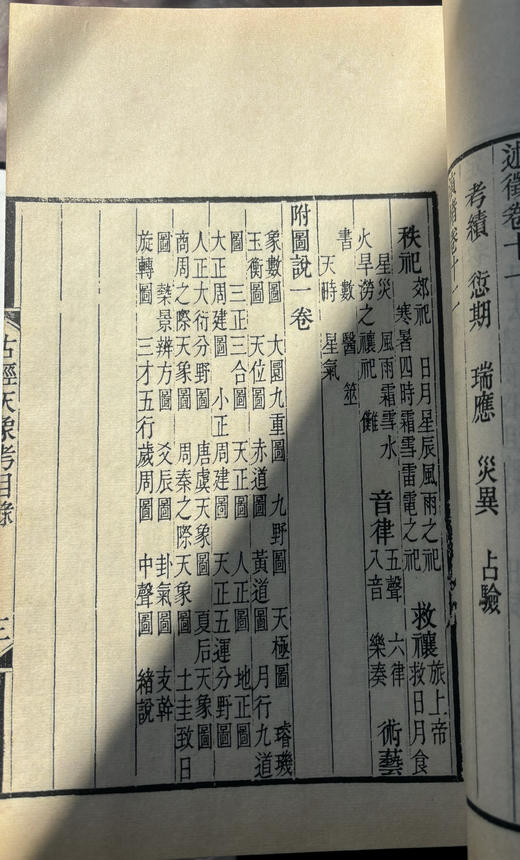 述徵卷十一
考績 愆期 瑞應 災異 占驗
緒卷十二
秩祀 郊祀 日月星辰風雨之祀
寒暑四時霜雪雷電之祀
救禳 旅上帝
救日月食
星災 風雨霜雪水
火旱澇之禳祀 儺
音律 五聲 六律
八音 樂奏
術藝
書 數 醫 筮
天時 星氣
附圖說一卷
象數圖 大圜九重圖 九野圖 天極圖 璿璣
玉衡圖 天位圖 赤道圖 黃道圖 月行九道
圖 三正三合圖 天正圖 人正圖 地正圖
大正周建圖 小正周建圖 天正五運分野圖
人正大衍分野圖 唐虞天象圖 夏后天象圖
商周之際天象圖 周秦之際天象圖 土圭致日
圖 槷景辨方圖 爻辰圖 卦氣圖 支幹
旋轉圖 三才五行歲周圖 中聲圖 緒說
古經天象考目錄 三